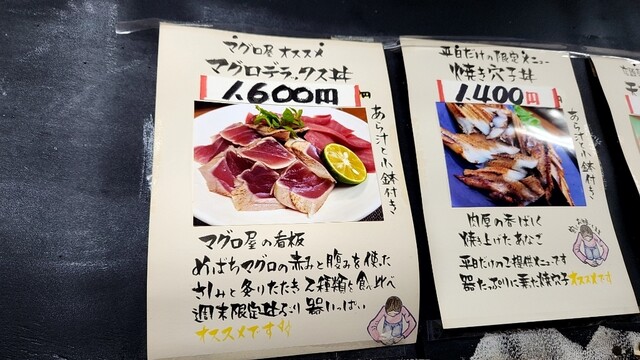 マグロ屋 オススメ
マグロデラックス丼
1.600円
円
あら汁と小鉢付き
マグロ屋の看板
めばちマグロの赤みと腹みを使った
さしみと炙りたたき2種類を食べ比べ
週末限定丼ぶり 器いっぱい
オススメです
平日だけの限定メニュー
焼き穴子丼
1.400円
あら汁と小鉢付き
肉厚の香ばしく
焼き上げたあなご
平日だけのご提供メニューです
器たっぷりに乗た焼穴子オススメです